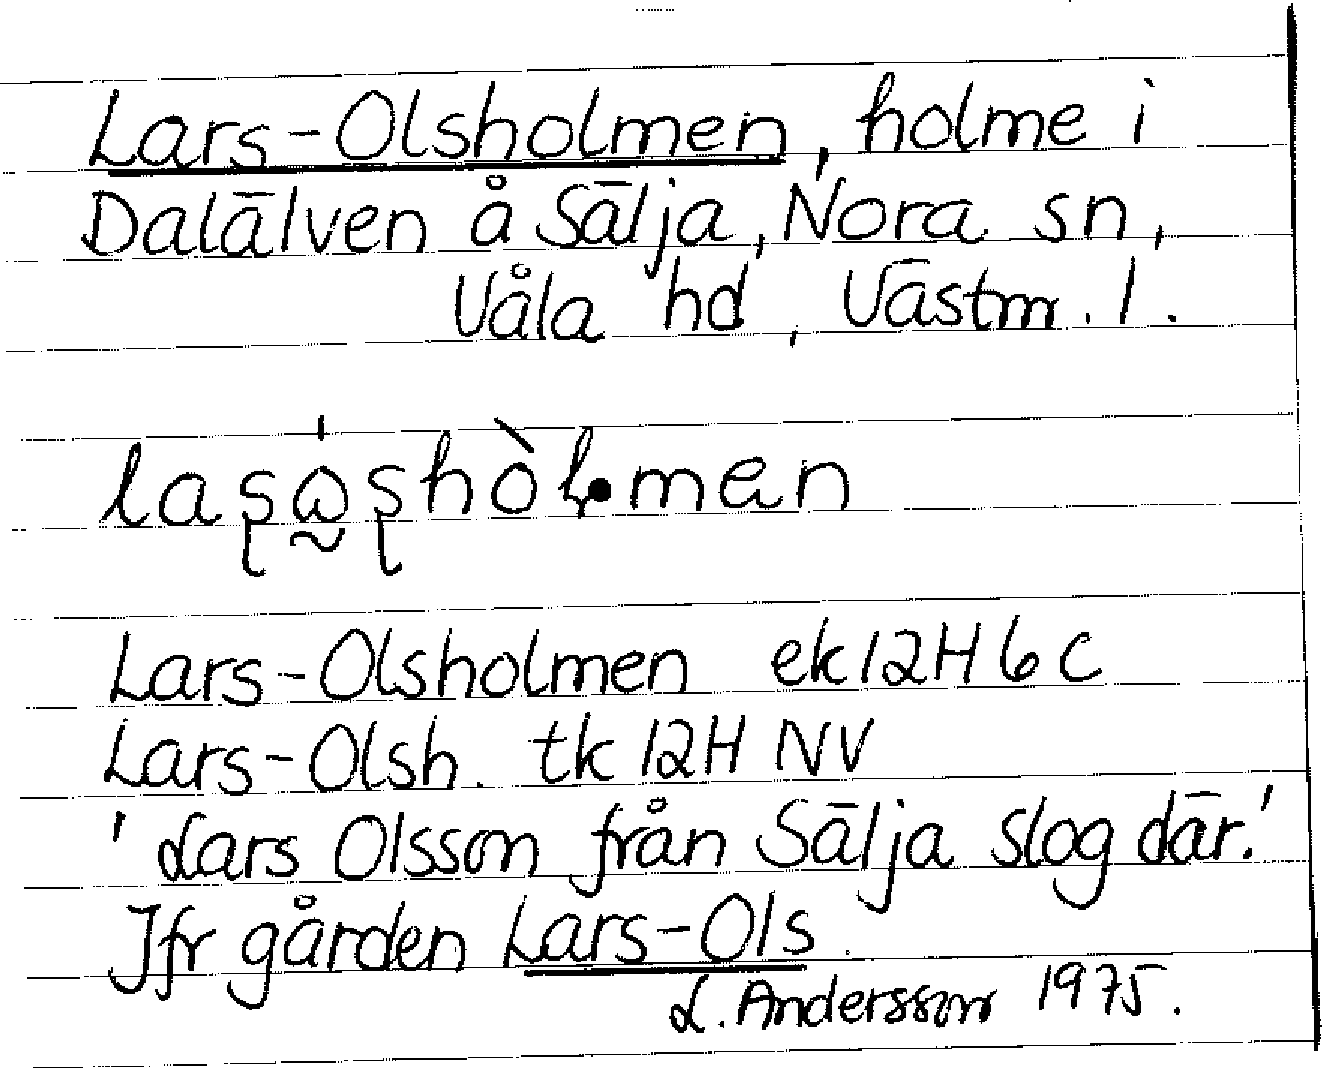 Lars-Olsholmen, holme i
Dalälven å Sälja, Nora sn,
Våla hd, Västm. l.
Lars-Olsholmen ek 12H 6c
Lars-Olsh. tk 12H NV
'Lars Olsson från Sälja slog där.'
Jfr gården Lars-Ols.
L. Andersson 1975.